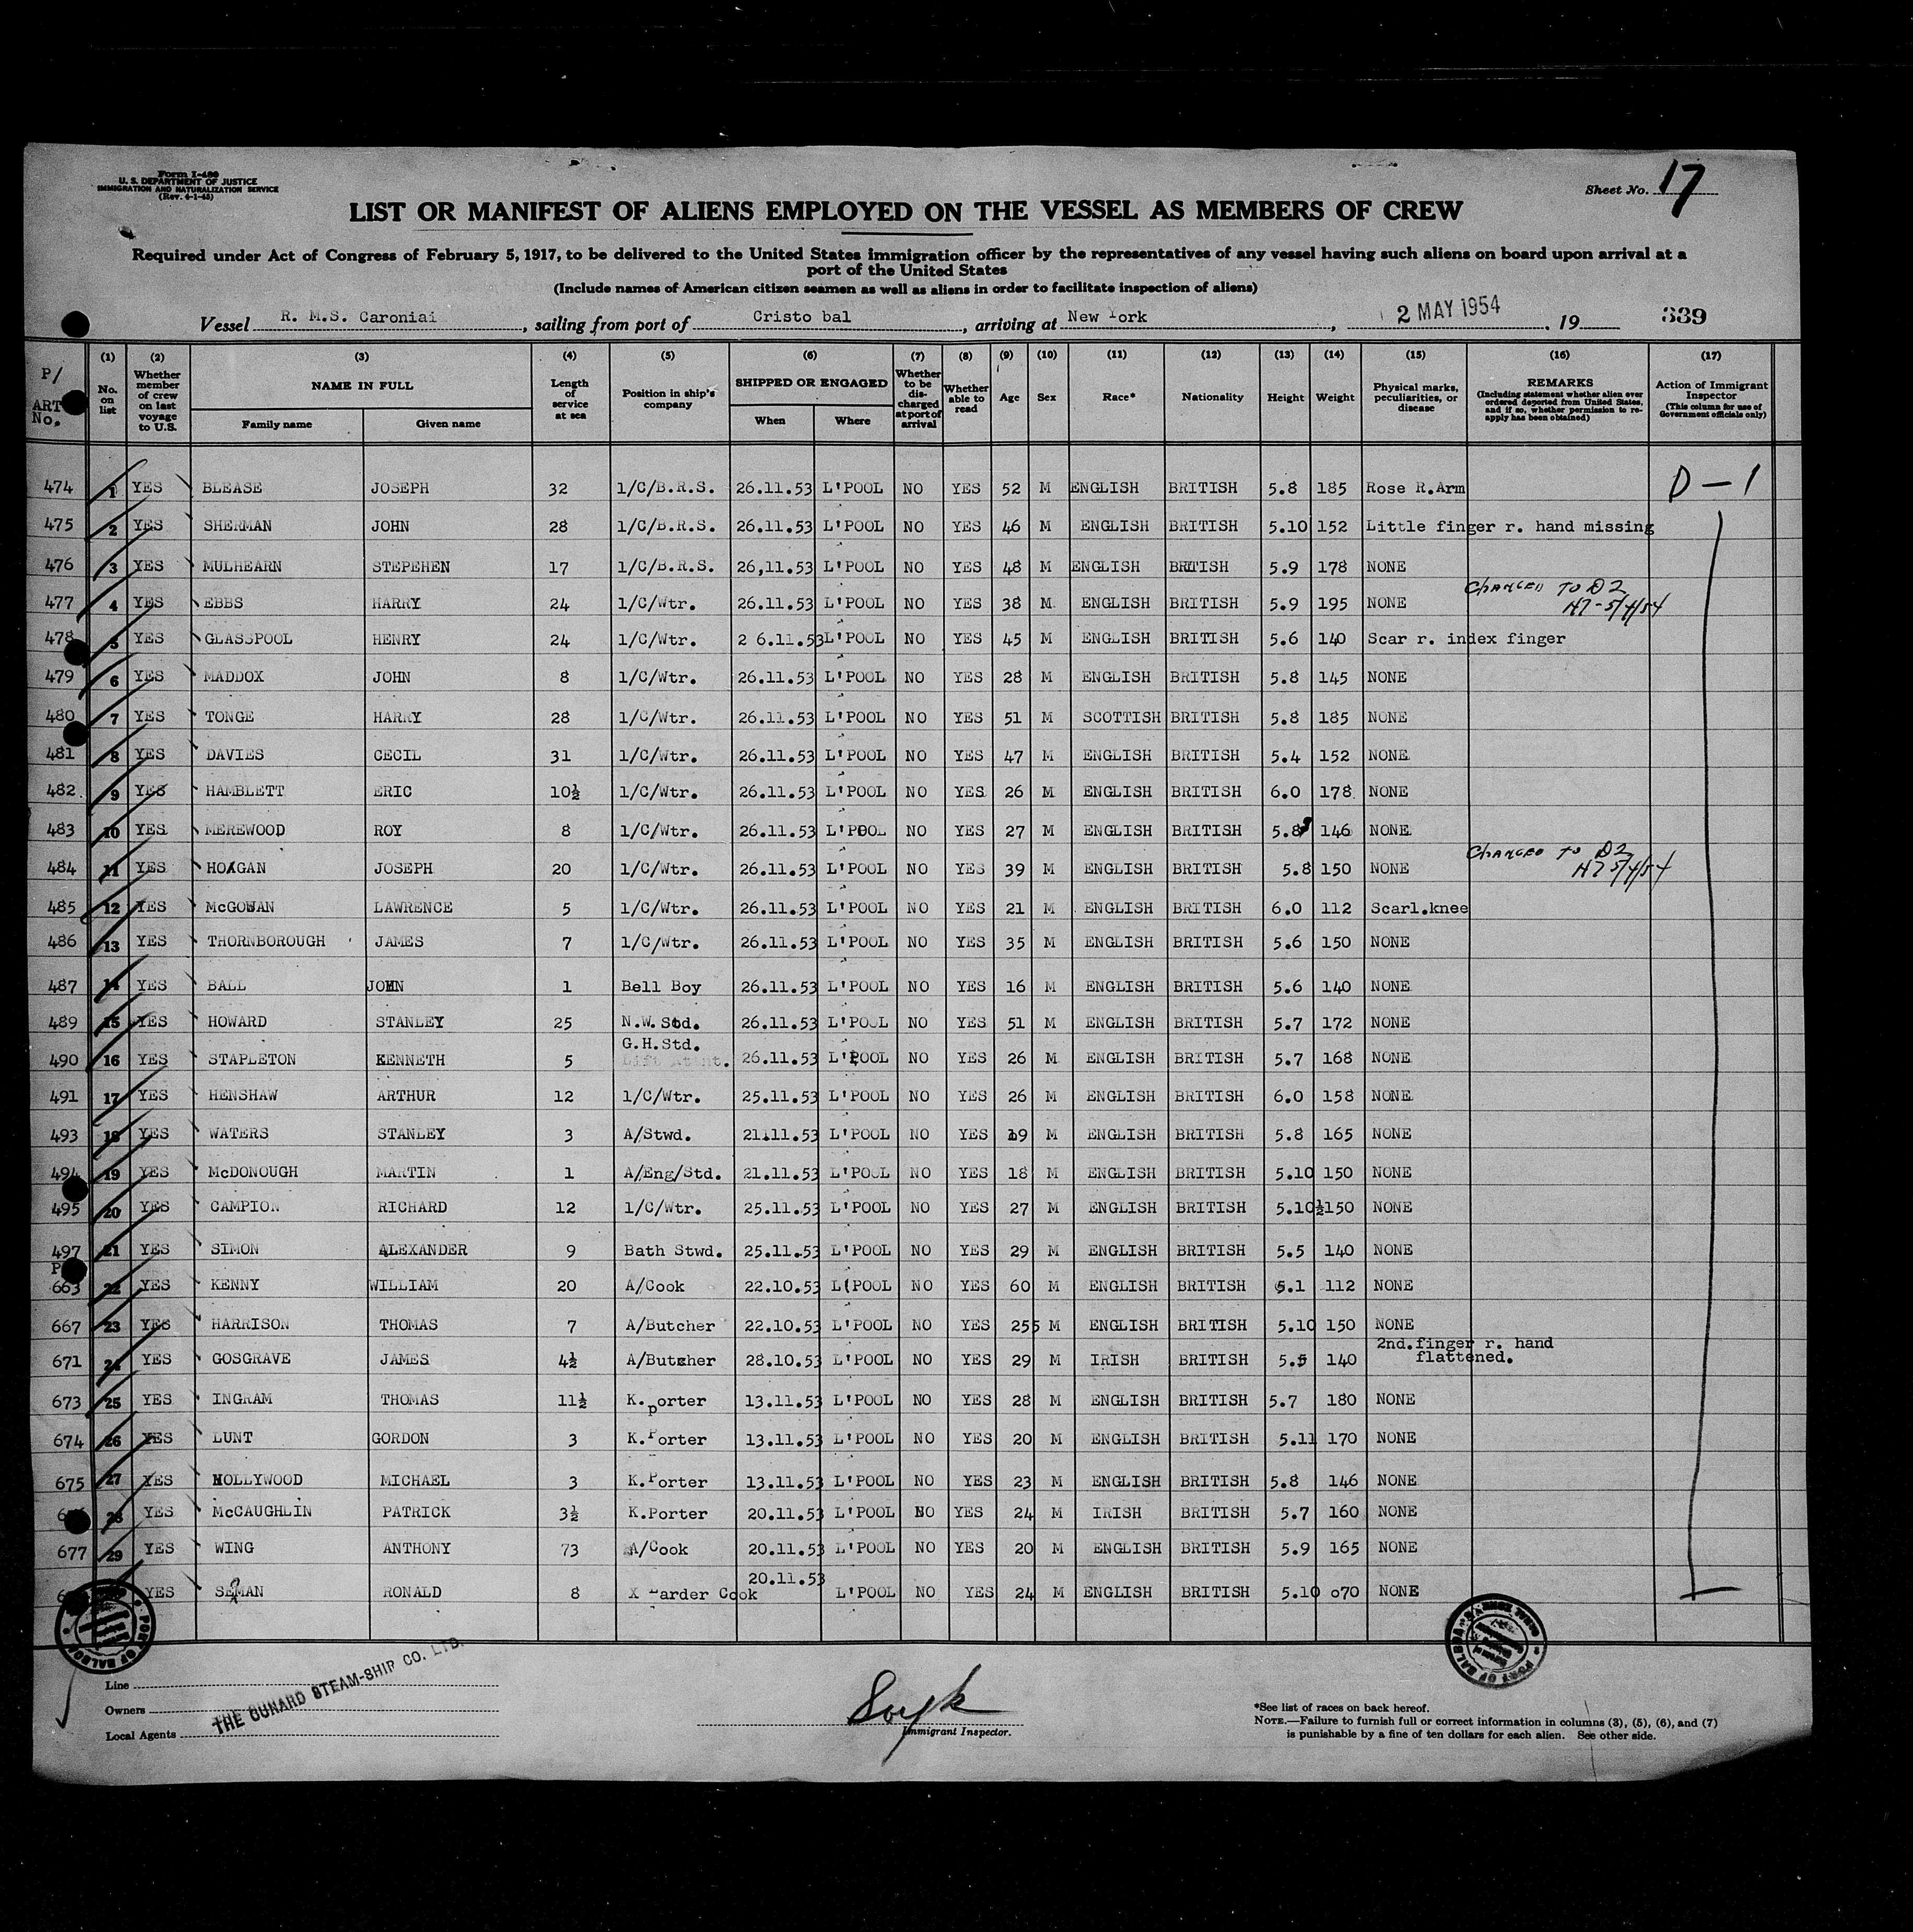 Form I-480
U. S. DEPARTMENT OF JUSTICE
IMMIGRATION AND NATURALIZATION SERVICE
(Rev. 4-1-45)
Sheet No. 17
LIST OR MANIFEST OF ALIENS EMPLOYED ON THE VESSEL AS MEMBERS OF CREW
Required under Act of Congress of February 5, 1917, to be delivered to the United States immigration officer by the representatives of any vessel having such aliens on board upon arrival at a
port of the United States
(Include names of American citizen seamen as well as aliens in order to facilitate inspection of aliens)
Vessel R. M.S. Caroniai, sailing from port of Cristo bal, arriving at New York, 2 MAY 1954, 19 339
P/ ART No. (1) No. on list (2) Whether member of crew on last voyage to U.S. (3) NAME IN FULL Family name Given name (4) Length of service at sea (5) Position in ship's company (6) SHIPPED OR ENGAGED When Where (7) Whether to be discharged at port of arrival (8) Whether able to read (9) Age (10) Sex (11) Race* (12) Nationality (13) Height (14) Weight (15) Physical marks, peculiarities, or disease (16) REMARKS (Including statement whether alien ever ordered deported from United States, and if so, whether permission to re-apply has been obtained) (17) Action of Immigrant Inspector (This column for use of Government officials only)
474 1 YES BLEASE JOSEPH 32 1/C/B.R.S. 26.11.53 L'POOL NO YES 52 M ENGLISH BRITISH 5.8 185 Rose R.Arm D-1
475 2 YES SHERMAN JOHN 28 1/C/B.R.S. 26.11.53 L'POOL NO YES 46 M ENGLISH BRITISH 5.10 152 Little finger r. hand missing
476 3 YES MULHEARN STEPEHEN 17 1/C/B.R.S. 26,11.53 L'POOL NO YES 48 M ENGLISH BRITISH 5.9 178 NONE
477 4 YES EBBS HARRY 24 1/C/Wtr. 26.11.53 L'POOL NO YES 38 M ENGLISH BRITISH 5.9 195 NONE CHANGED TO D2 5/4/54
478 5 YES GLASSPOOL HENRY 24 1/C/Wtr. 2 6.11.53 L'POOL NO YES 45 M ENGLISH BRITISH 5.6 140 Scar r. index finger
479 6 YES MADDOX JOHN 8 1/C/Wtr. 26.11.53 L'POOL NO YES 28 M ENGLISH BRITISH 5.8 145 NONE
480 7 YES TONGE HARRY 28 1/C/Wtr. 26.11.53 L'POOL NO YES 51 M SCOTTISH BRITISH 5.8 185 NONE
481 8 YES DAVIES CECIL 31 1/C/Wtr. 26.11.53 L'POOL NO YES 47 M ENGLISH BRITISH 5.4 152 NONE
482 9 YES HAMBLETT ERIC 10½ 1/C/Wtr. 26.11.53 L'POOL NO YES 26 M ENGLISH BRITISH 6.0 178 NONE
483 10 YES MEREWOOD ROY 8 1/C/Wtr. 26.11.53 L'POOL NO YES 27 M ENGLISH BRITISH 5.8 146 NONE
484 11 YES HOGAN JOSEPH 20 1/C/Wtr. 26.11.53 L'POOL NO YES 39 M ENGLISH BRITISH 5.8 150 NONE CHANGED TO D2 5/4/54
485 12 YES McGOWAN LAWRENCE 5 1/C/Wtr. 26.11.53 L'POOL NO YES 21 M ENGLISH BRITISH 6.0 112 Scarl.knee
486 13 YES THORNBOROUGH JAMES 7 1/C/Wtr. 26.11.53 L'POOL NO YES 35 M ENGLISH BRITISH 5.6 150 NONE
487 14 YES BALL JOHN 1 Bell Boy 26.11.53 L'POOL NO YES 16 M ENGLISH BRITISH 5.6 140 NONE
489 15 YES HOWARD STANLEY 25 N.W. Std. 26.11.53 L'POOL NO YES 51 M ENGLISH BRITISH 5.7 172 NONE
490 16 YES STAPLETON KENNETH 5 G.H.Std. 26.11.53 L'POOL NO YES 26 M ENGLISH BRITISH 5.7 168 NONE
491 17 YES HENSHAW ARTHUR 12 1/C/Wtr. 25.11.53 L'POOL NO YES 26 M ENGLISH BRITISH 6.0 158 NONE
493 18 YES WATERS STANLEY 3 A/Stwd. 21.11.53 L'POOL NO YES 19 M ENGLISH BRITISH 5.8 165 NONE
494 19 YES McDONOUGH MARTIN 1 A/Eng/Std. 21.11.53 L'POOL NO YES 18 M ENGLISH BRITISH 5.10 150 NONE
495 20 YES CAMPION RICHARD 12 1/C/Wtr. 25.11.53 L'POOL NO YES 27 M ENGLISH BRITISH 5.10½ 150 NONE
497 21 YES SIMON ALEXANDER 9 Bath Stwd. 25.11.53 L'POOL NO YES 29 M ENGLISH BRITISH 5.5 140 NONE
663 22 YES KENNY WILLIAM 20 A/Cook 22.10.53 L(POOL NO YES 60 M ENGLISH BRITISH 5.1 112 NONE
667 23 YES HARRISON THOMAS 7 A/Butcher 22.10.53 L'POOL NO YES 255 M ENGLISH BRITISH 5.10 150 NONE
671 24 YES GOSGRAVE JAMES 4½ A/Butcher 28.10.53 L'POOL NO YES 29 M IRISH BRITISH 5.5 140 2nd.finger r. hand flattened.
673 25 YES INGRAM THOMAS 11½ K.porter 13.11.53 L'POOL NO YES 28 M ENGLISH BRITISH 5.7 180 NONE
674 26 YES LUNT GORDON 3 K.Porter 13.11.53 L'POOL NO YES 20 M ENGLISH BRITISH 5.11 170 NONE
675 27 YES HOLLYWOOD MICHAEL 3 K.Porter 13.11.53 L'POOL NO YES 23 M ENGLISH BRITISH 5.8 146 NONE
28 YES McCAUGHLIN PATRICK 3½ K.Porter 20.11.53 L'POOL NO YES 24 M IRISH BRITISH 5.7 160 NONE
677 29 YES WING ANTHONY 73 A/Cook 20.11.53 L'POOL NO YES 20 M ENGLISH BRITISH 5.9 165 NONE
YES RONALD 8 X Larder Cook 20.11.53 L'POOL NO YES 24 M ENGLISH BRITISH 5.10 o70 NONE
PORT OF BALBOA
PORT OF BALBOA
Line
Owners
Local Agents
THE CUNARD STEAM-SHIP CO. LTD.
Immigrant Inspector.
*See list of races on back hereof.
NOTE.—Failure to furnish full or correct information in columns (3), (5), (6), and (7)
is punishable by a fine of ten dollars for each alien. See other side.